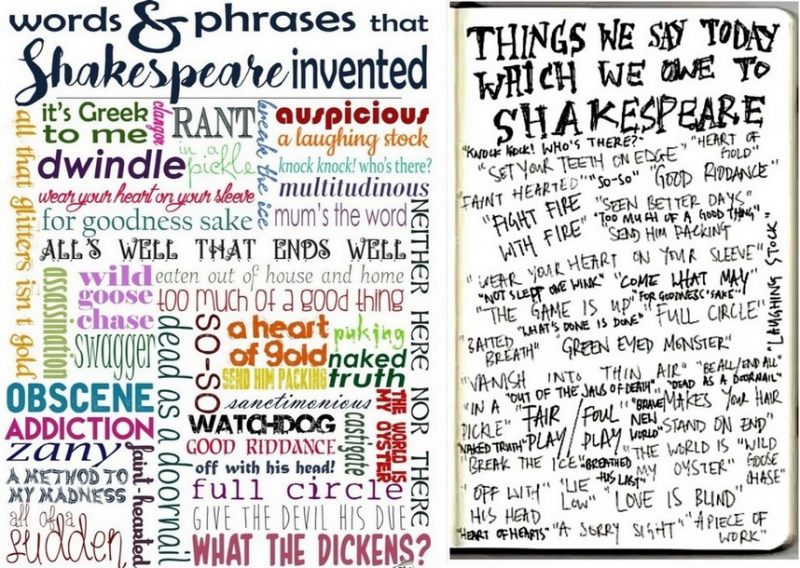 words & phrases that
Shakespeare invented
it's Greek
to me
clangor
RANT
break the ice
auspicious
a laughing stock
all that glitters isn't gold
dwindle
in a
pickle
knock knock! who's there?
multitudinous
wear your heart on your sleeve
for goodness sake
mum's the word
NEITHER HERE NOR THERE
ALL'S WELL THAT ENDS WELL
assassination
wild
goose
chase
eaten out of house and home
too much of a good thing
swagger
dead as a doornail
SO-SO
a heart
of gold
puking
SEND HIM PACKING
naked
truth
OBSCENE
sanctimonious
THE WORLD IS
MY OYSTER
ADDICTION
WATCHDOG
castigate
zany
faint-hearted
GOOD RIDDANCE
A METHOD TO
MY MADNESS
off with his head!
full circle
all of a
sudden
GIVE THE DEVIL HIS DUE
WHAT THE DICKENS?
THINGS WE SAY TODAY
WHICH WE OWE TO
SHAKESPEARE
"KNOCK KNOCK! WHO'S THERE?" "HEART OF
GOLD"
"SET YOUR TEETH ON EDGE"
FAINT HEARTED" "SO-SO" "GOOD RIDDANCE"
"FIGHT FIRE
WITH FIRE"
"SEEN BETTER DAYS"
"TOO MUCH OF A GOOD THING"
"SEND HIM PACKING
"WEAR YOUR HEART ON YOUR SLEEVE"
"LAUGHING STOCK"
"NOT SLEPT ONE WINK" "COME WHAT MAY"
"THE GAME IS UP" "FOR GOODNESS SAKE"
"WHAT'S DONE IS DONE" "FULL CIRCLE"
"BAITED
BREATH"
GREEN EYED MONSTER"
"VANISH INTO THIN AIR" "BE ALL/END ALL"
"OUT OF THE JAWS OF DEATH" "DEAD AS A DOORNAIL"
"IN A
PICKLE"
"FAIR
PLAY"
/FOUL
PLAY"
"BRAVE
NEW
WORLD"
MAKES YOUR HAIR
STAND ON END"
"NAKED TRUTH"
"BREAK THE ICE" "BREATHED
HIS LAST"
"THE WORLD IS
MY OYSTER"
"WILD
GOOSE
CHASE"
"OFF WITH
HIS HEAD
"LIE
LOW"
"LOVE IS BLIND"
"HEART OF HEARTS" "A SORRY SIGHT" "A PIECE OF
WORK"